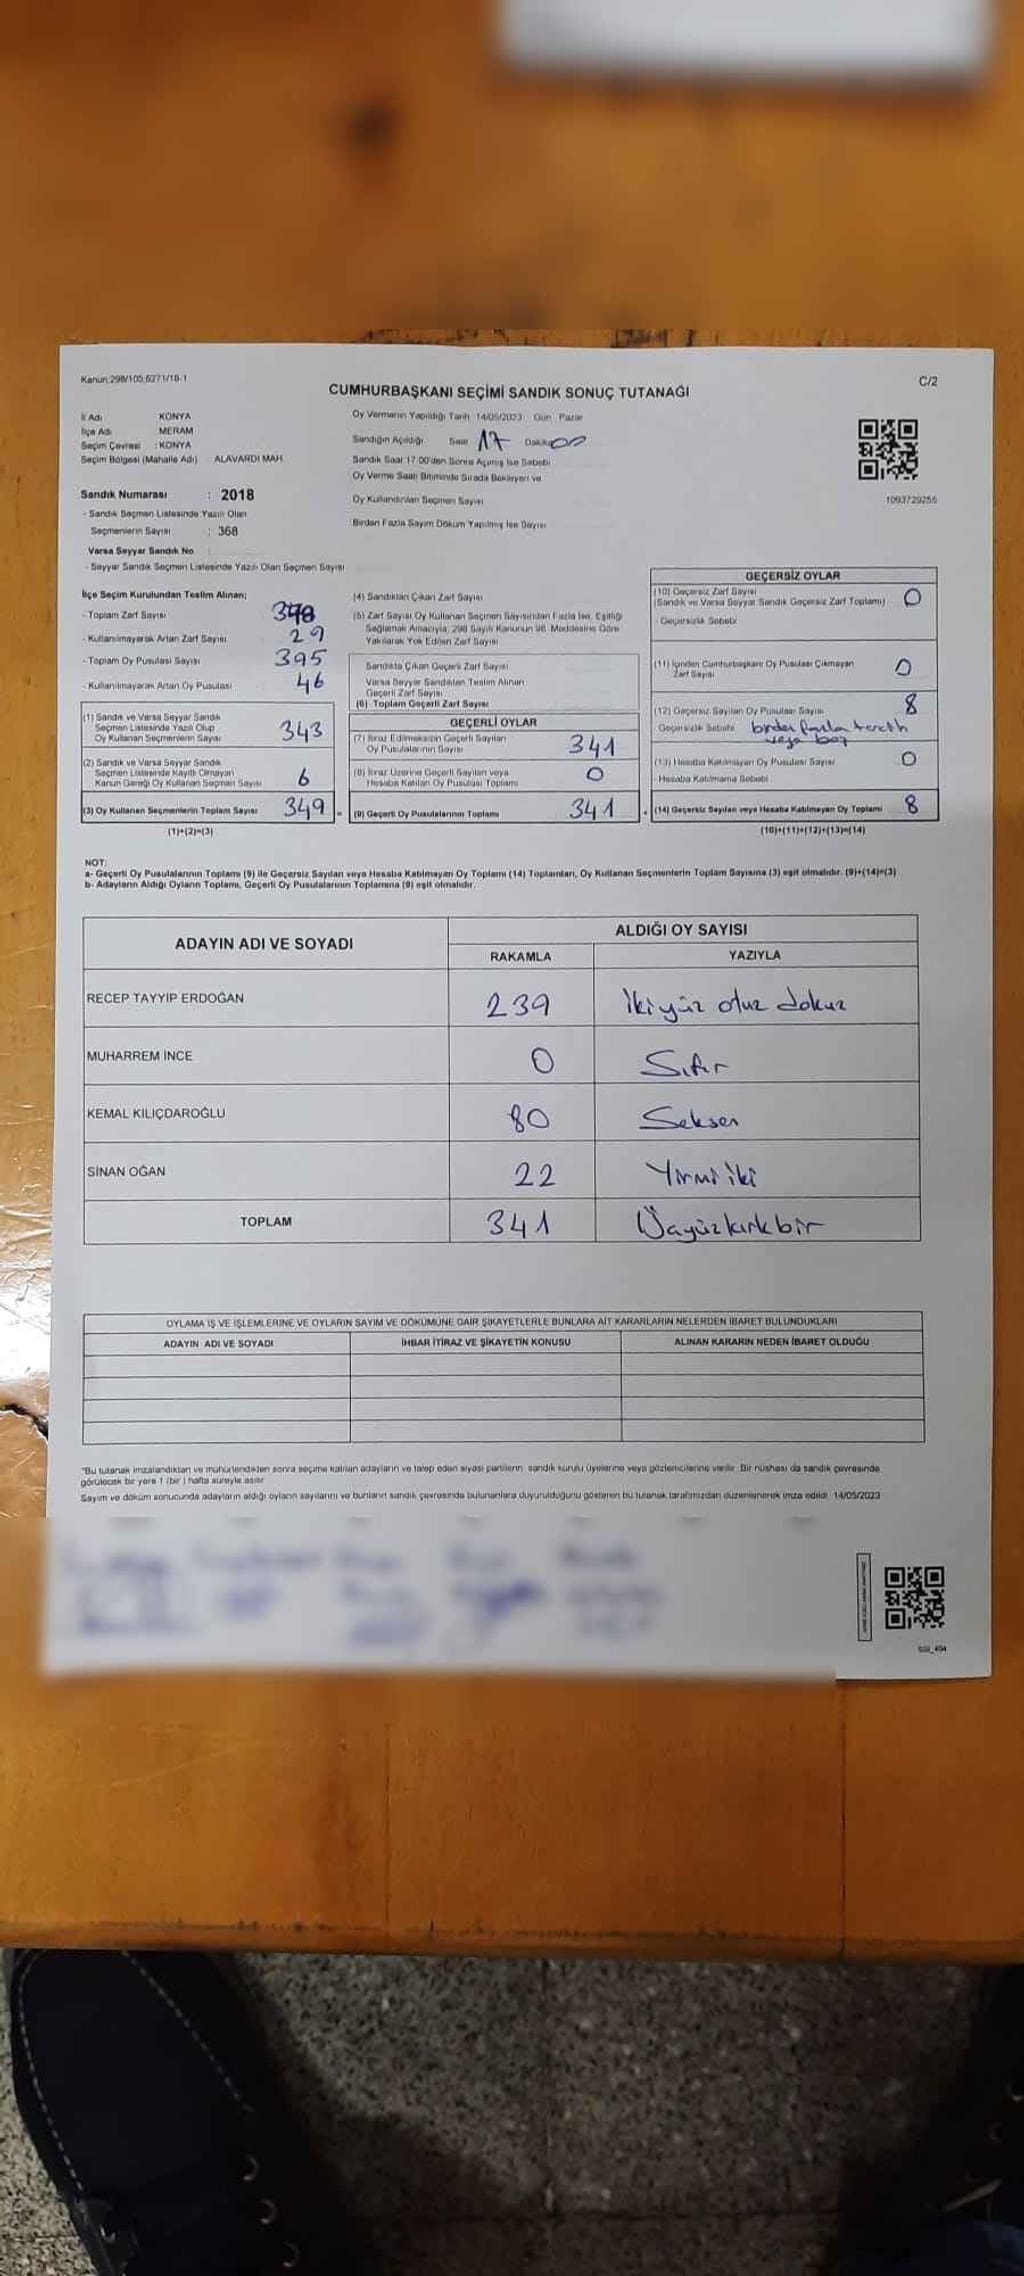 Kanun:298/105;6271/18-1
C/2
CUMHURBAŞKANI SEÇİMİ SANDIK SONUÇ TUTANAĞI
İl Adı KONYA
İlçe Adı MERAM
Seçim Çevresi : KONYA
Seçim Bölgesi (Mahalle Adı) ALAVARDI MAH.
Oy Vermenin Yapıldığı Tarih 14/05/2023 Gün Pazar
Sandığın Açıldığı Saat 17 Dakika 00
Sandık Saat 17:00'den Sonra Açılmış İse Sebebi
Oy Verme Saati Bitiminde Sırada Bekleyen ve
Oy Kullandırılan Seçmen Sayısı
Birden Fazla Sayım Döküm Yapılmış İse Sayısı
1093729255
Sandık Numarası : 2018
- Sandık Seçmen Listesinde Yazılı Olan
Seçmenlerin Sayısı : 368
Varsa Seyyar Sandık No :
- Seyyar Sandık Seçmen Listesinde Yazılı Olan Seçmen Sayısı
İlçe Seçim Kurulundan Teslim Alınan;
- Toplam Zarf Sayısı
- Kullanılmayarak Artan Zarf Sayısı 29
- Toplam Oy Pusulası Sayısı 395
- Kullanılmayarak Artan Oy Pusulası 46
(1) Sandık ve Varsa Seyyar Sandık
Seçmen Listesinde Yazılı Olup
Oy Kullanan Seçmenlerin Sayısı 343
(2) Sandık ve Varsa Seyyar Sandık
Seçmen Listesinde Kayıtlı Olmayan
Kanun Gereği Oy Kullanan Seçmen Sayısı 6
(3) Oy Kullanan Seçmenlerin Toplam Sayısı 349
(1)+(2)=(3)
(4) Sandıktan Çıkan Zarf Sayısı
(5) Zarf Sayısı Oy Kullanan Seçmen Sayısından Fazla İse, Eşitliği
Sağlamak Amacıyla, 298 Sayılı Kanunun 98. Maddesine Göre
Yakılarak Yok Edilen Zarf Sayısı
Sandıkta Çıkan Geçerli Zarf Sayısı
Varsa Seyyar Sandıktan Teslim Alınan
Geçerli Zarf Sayısı
(6) Toplam Geçerli Zarf Sayısı
GEÇERLİ OYLAR
(7) İtiraz Edilmeksizin Geçerli Sayılan
Oy Pusulalarının Sayısı 341
(8) İtiraz Üzerine Geçerli Sayılan veya
Hesaba Katılan Oy Pusulası Toplamı 0
(9) Geçerli Oy Pusulalarının Toplamı 341
GEÇERSİZ OYLAR
(10) Geçersiz Zarf Sayısı 0
(Sandık ve Varsa Seyyar Sandık Geçersiz Zarf Toplamı)
- Geçersizlik Sebebi
(11) İçinden Cumhurbaşkanı Oy Pusulası Çıkmayan
Zarf Sayısı 0
(12) Geçersiz Sayılan Oy Pusulası Sayısı 8
Geçersizlik Sebebi birden fazla tercih
veya boş
(13) Hesaba Katılmayan Oy Pusulası Sayısı 0
- Hesaba Katılmama Sebebi
(14) Geçersiz Sayılan veya Hesaba Katılmayan Oy Toplamı 8
(10)+(11)+(12)+(13)=(14)
NOT:
a- Geçerli Oy Pusulalarının Toplamı (9) ile Geçersiz Sayılan veya Hesaba Katılmayan Oy Toplamı (14) Toplamları, Oy Kullanan Seçmenlerin Toplam Sayısına (3) eşit olmalıdır. (9)+(14)=(3)
b- Adayların Aldığı Oyların Toplamı, Geçerli Oy Pusulalarının Toplamına (9) eşit olmalıdır.
ADAYIN ADI VE SOYADI
ALDIĞI OY SAYISI
RAKAMLA YAZIYLA
RECEP TAYYİP ERDOĞAN 239 İkiyüz otuz dokuz
MUHARREM İNCE 0 Sıfır
KEMAL KILIÇDAROĞLU 80 Seksen
SİNAN OĞAN 22 Yirmi iki
TOPLAM 341 Üçyüzkırkbir
OYLAMA İŞ VE İŞLEMLERİNE VE OYLARIN SAYIM VE DÖKÜMÜNE DAİR ŞİKAYETLERLE BUNLARA AİT KARARLARIN NELERDEN İBARET BULUNDUKLARI
ADAYIN ADI VE SOYADI İHBAR İTİRAZ VE ŞİKAYETİN KONUSU ALINAN KARARIN NEDEN İBARET OLDUĞU
*Bu tutanak imzalandıktan ve mühürlendikten sonra seçime katılan adayların ve talep eden siyasi partilerin sandık kurulu üyelerine veya gözlemcilerine verilir. Bir nüshası da sandık çevresinde
görülecek bir yere 1 (bir) hafta süreyle asılır.
Sayım ve döküm sonucunda adayların aldığı oyların sayılarını ve bunların sandık çevresinde bulunanlara duyurulduğunu gösteren bu tutanak tarafımızdan düzenlenerek imza edildi. 14/05/2023